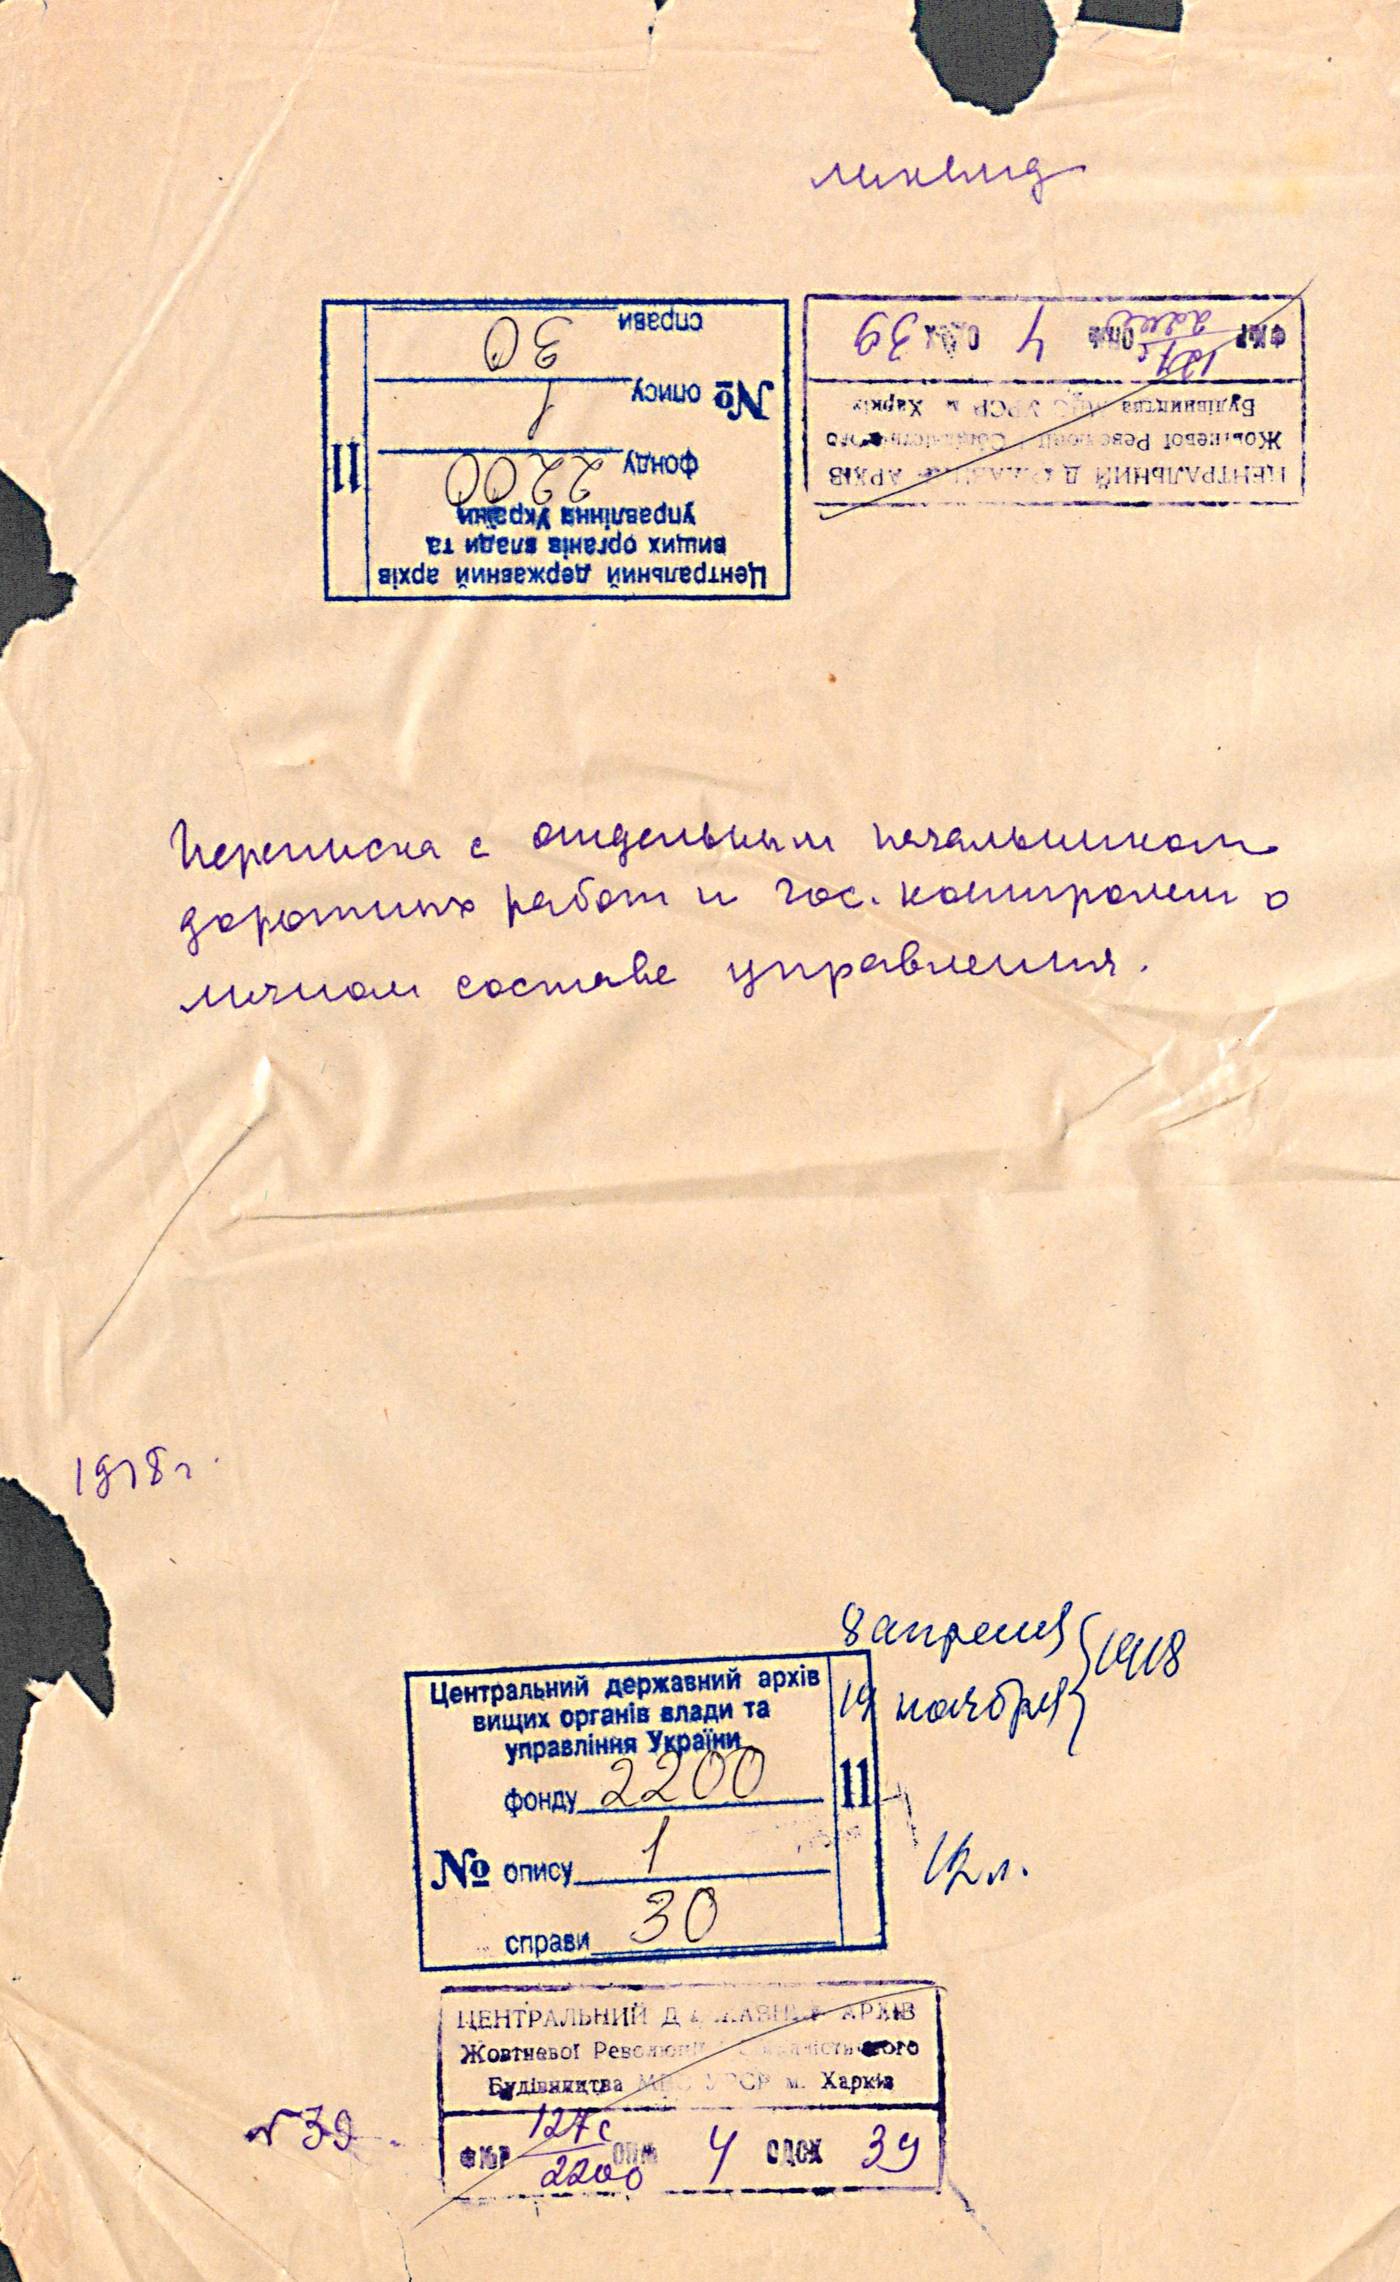 ликвид
ЦЕНТРАЛЬНИЙ АРХІВ
Жовтневої Революції
Будівництва УРСР м. Харків
127с
2200 4 39
Центральний державний архів
вищих органів влади та
управління України
фонду 2200
№ опису 1
справи 30
11
Переписка с отдельным начальником
дорожных работ и гос. контролем о
личном составе управления.
1918 г.
8 апреля
19 ноября
1918
Центральний державний архів
вищих органів влади та
управління України
фонду 2200
№ опису 1
справи 30
11
12 л.
ЦЕНТРАЛЬНИЙ АРХІВ
Жовтневої Революції
Будівництва УРСР м. Харків
127с
2200 4 39
№ 39